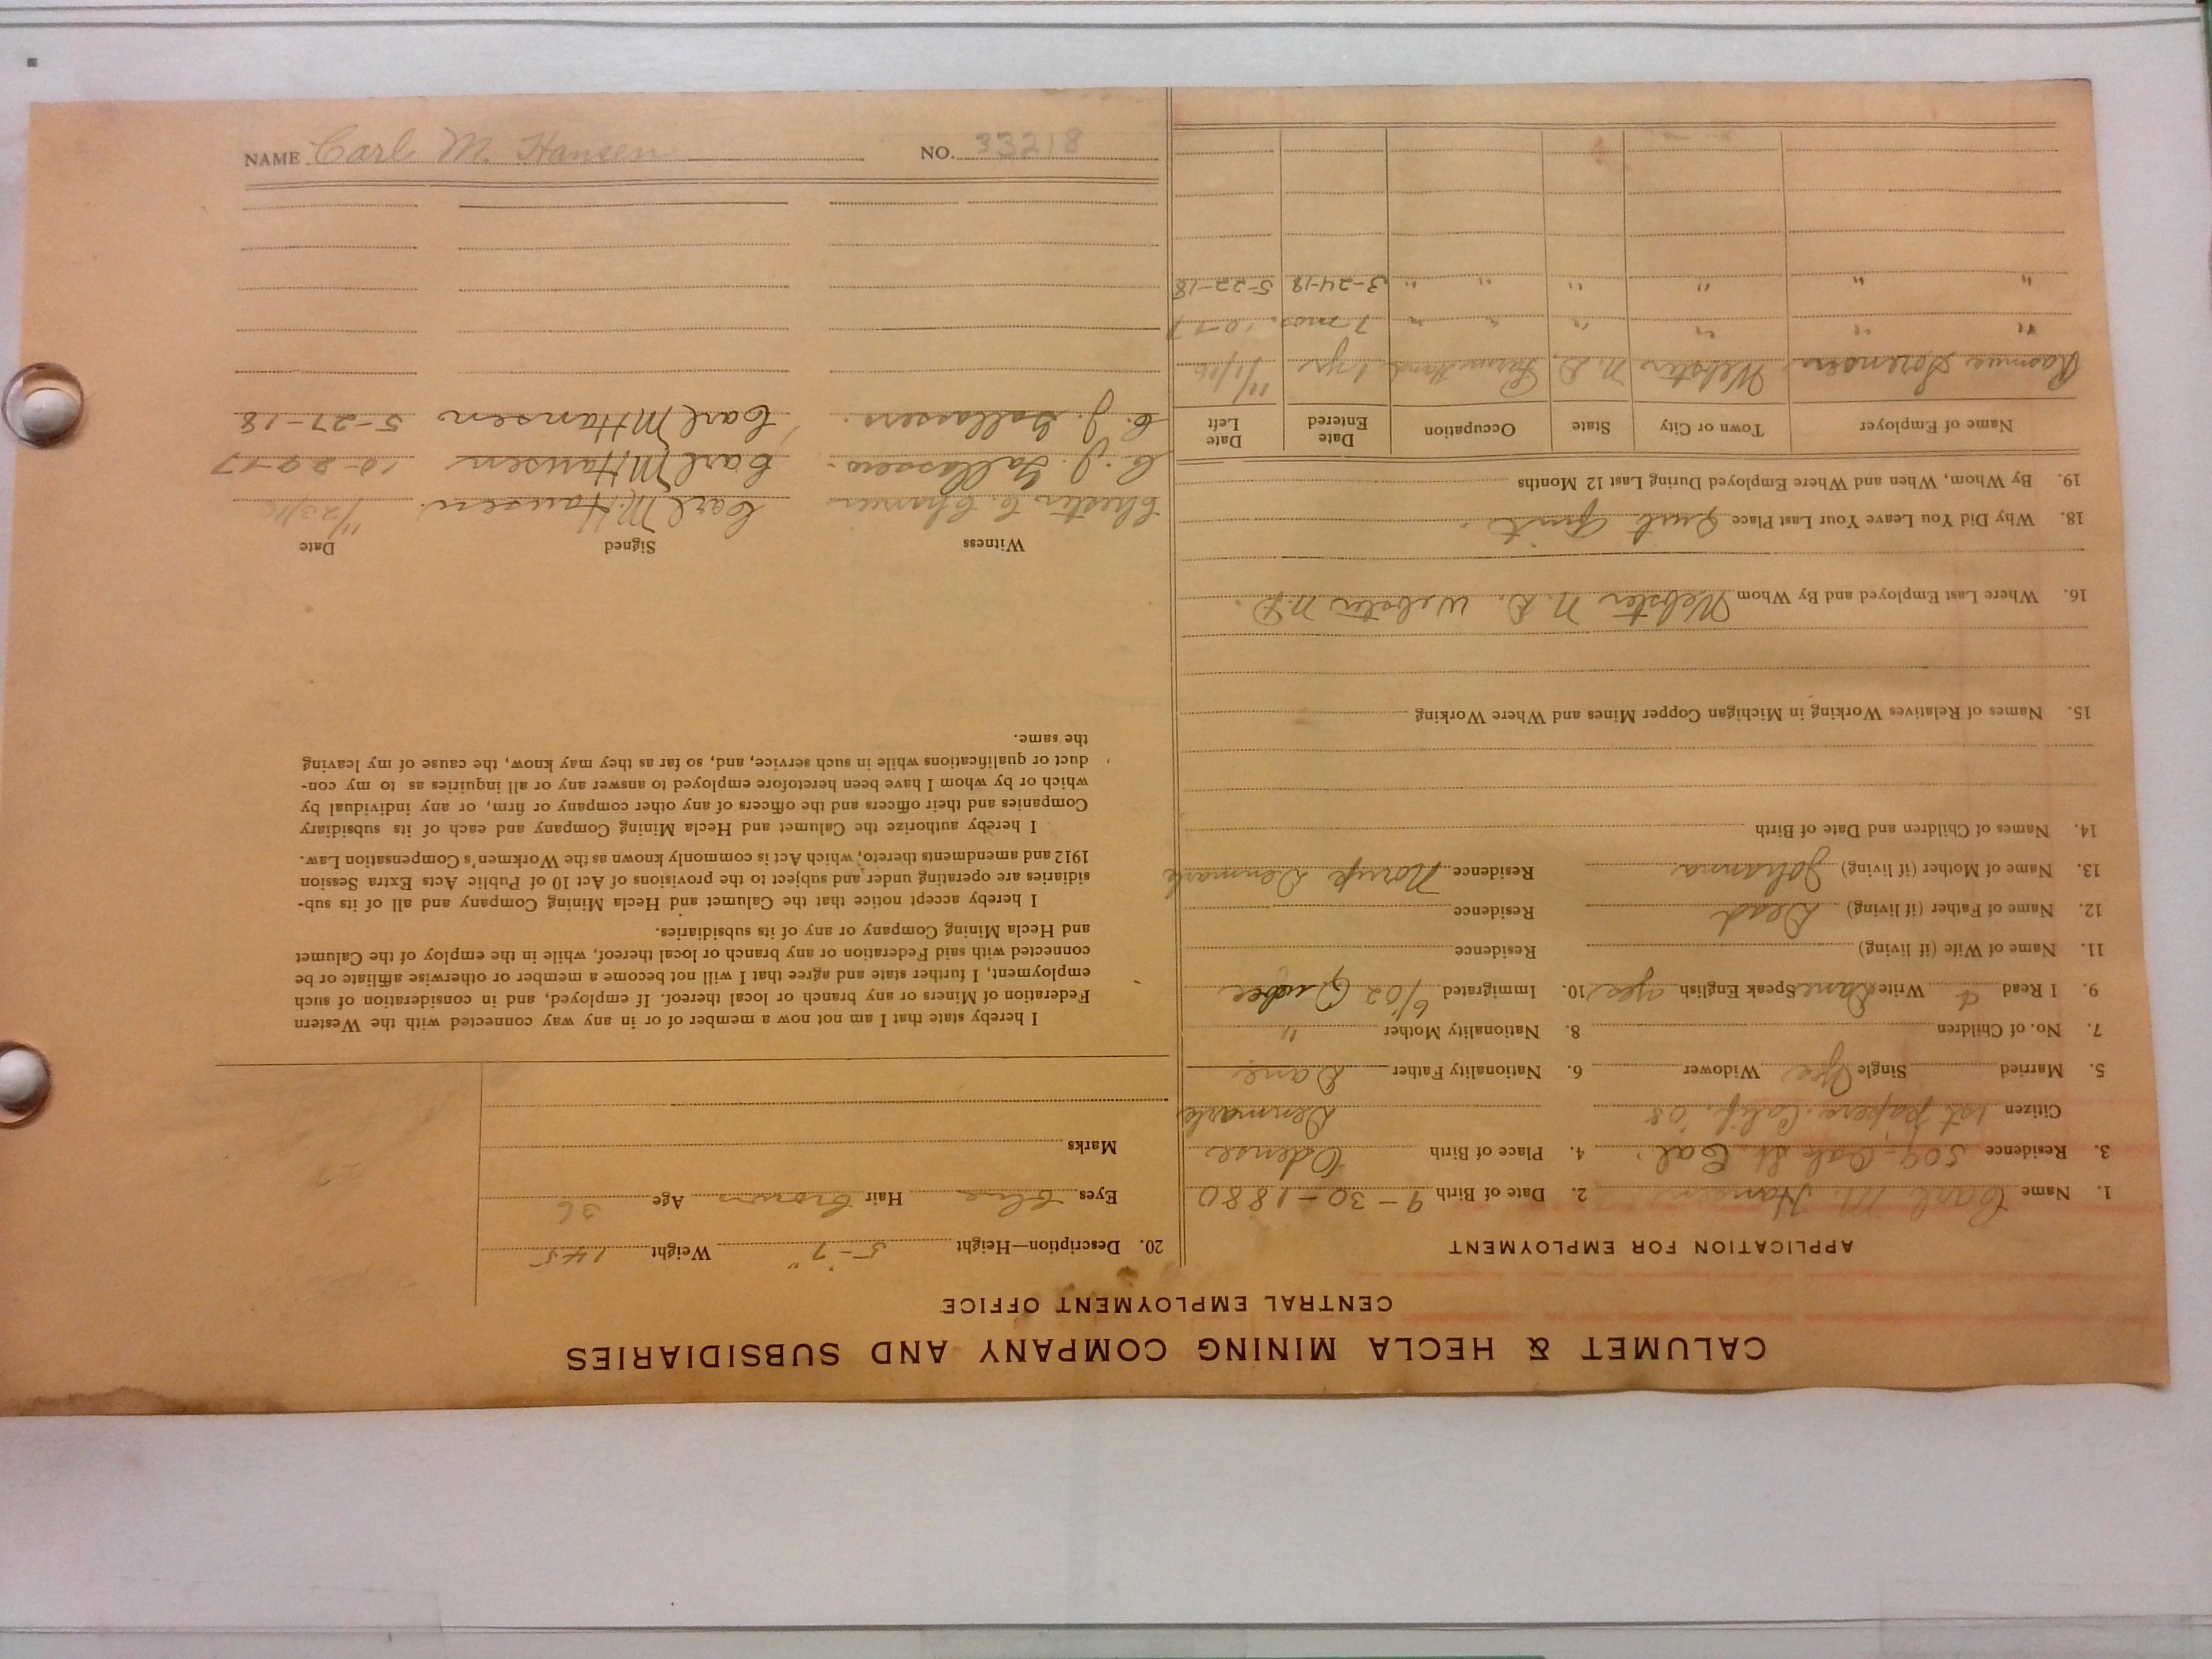 CALUMET & HECLA MINING COMPANY AND SUBSIDIARIES
CENTRAL EMPLOYMENT OFFICE
APPLICATION FOR EMPLOYMENT
1. Name Carl M. Hansen 2. Date of Birth 9-30-1880
3. Residence 509-Oak St. Cal. 4. Place of Birth Odense
Citizen 1st papers. Calif. '08 Denmark
5. Married Single Yes Widower 6. Nationality Father Dane
7. No. of Children 8. Nationality Mother "
9. I Read & Write Dane Speak English yes 10. Immigrated 6/02
11. Name of Wife (if living) Residence
12. Name of Father (if living) Dead Residence
13. Name of Mother (if living) Johanna Residence Denmark
14. Names of Children and Date of Birth
15. Names of Relatives Working in Michigan Copper Mines and Where Working
16. Where Last Employed and By Whom Webster N.D. Webster N.D.
18. Why Did You Leave Your Last Place Quit
19. By Whom, When and Where Employed During Last 12 Months
Name of Employer Town or City State Occupation Date Entered Date Left
Rasmus Sorenson Webster N.D. Farm Hand 1 yr 11/1/16
" " " " " " 7 mos. 10-17
" " " " " " 3-24-18 5-22-18
20. Description—Height 5-7" Weight 145
Eyes blue Hair brown Age 36
Marks
I hereby state that I am not now a member of or in any way connected with the Western
Federation of Miners or any branch or local thereof. If employed, and in consideration of such
employment, I further state and agree that I will not become a member or otherwise affiliate or be
connected with said Federation or any branch or local thereof, while in the employ of the Calumet
and Hecla Mining Company or any of its subsidiaries.
I hereby accept notice that the Calumet and Hecla Mining Company and all of its sub-
sidiaries are operating under and subject to the provisions of Act 10 of Public Acts Extra Session
1912 and amendments thereto, which Act is commonly known as the Workmen's Compensation Law.
I hereby authorize the Calumet and Hecla Mining Company and each of its subsidiary
Companies and their officers and the officers of any other company or firm, or any individual by
which or by whom I have been heretofore employed to answer any or all inquiries as to my con-
duct or qualifications while in such service, and, so far as they may know, the cause of my leaving
the same.
Witness Signed Date
Chester C. Carl M. Hansen 11/23/16
C. J. Carl M Hansen 10-29-17
C. J. Carl M Hansen 5-27-18
NAME Carl M. Hansen NO. 33218